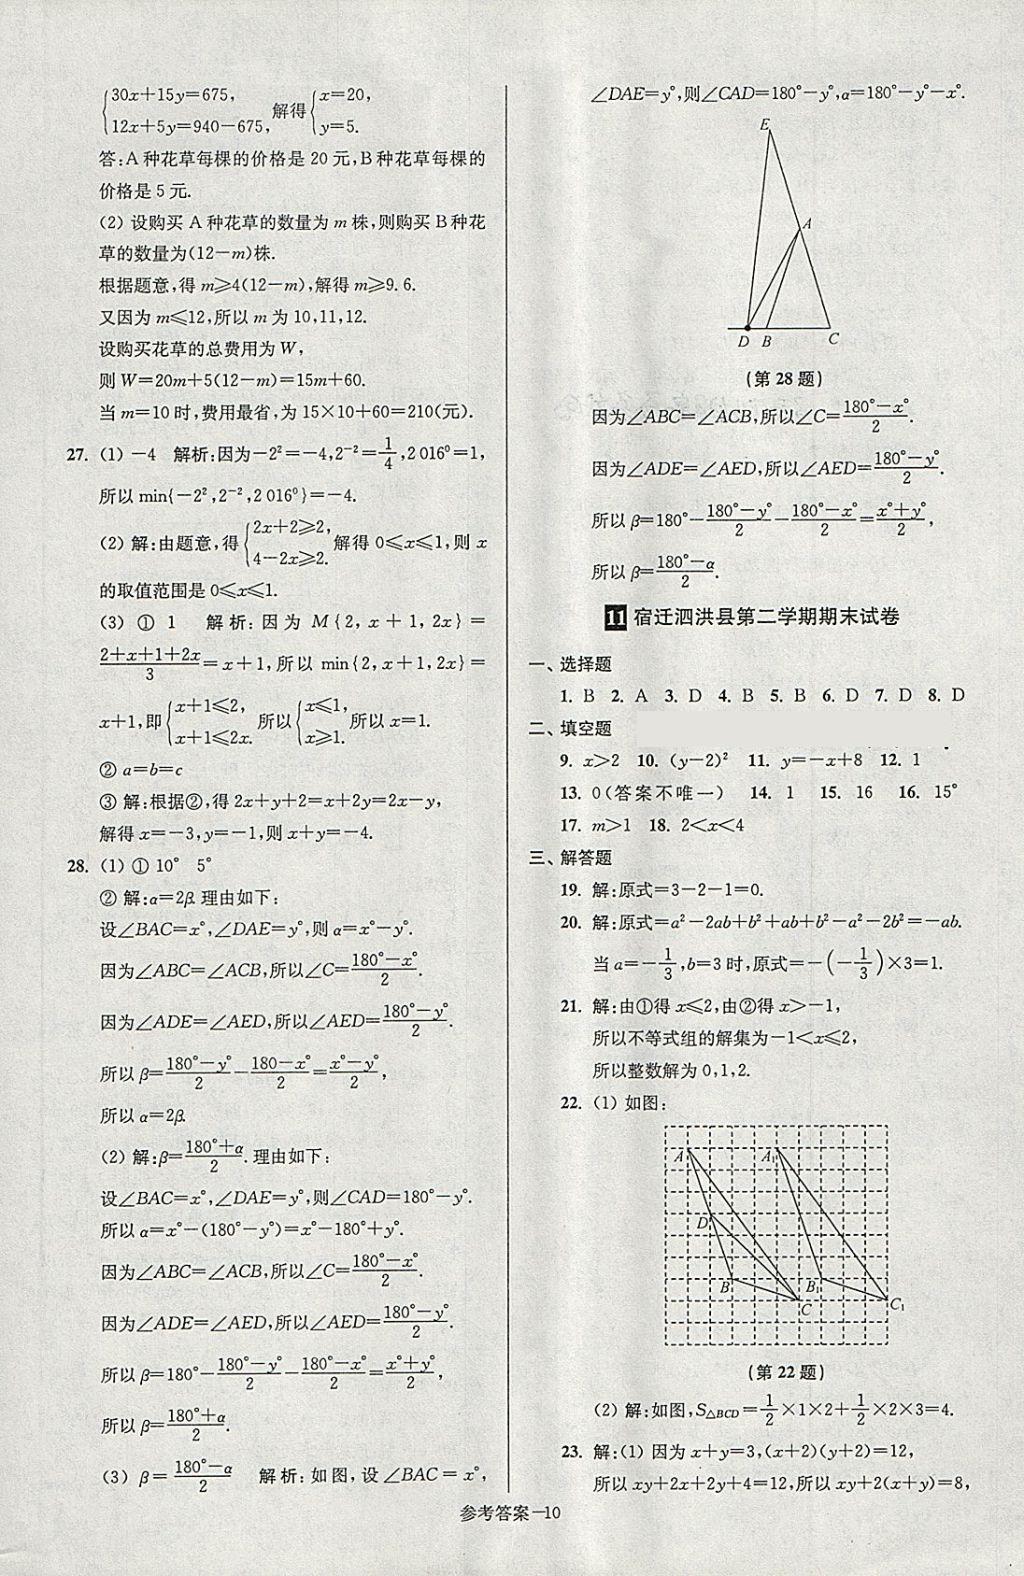 {30x+15y=675, 12x+5y=940-675, 解得 {x=20, y=5.
答:A 种花草每棵的价格是 20 元,B 种花草每棵的
价格是 5 元.
(2) 设购买 A 种花草的数量为 m 株,则购买 B 种花
草的数量为(12-m)株.
根据题意,得 m≥4(12-m),解得 m≥9.6.
又因为 m≤12,所以 m 为 10,11,12.
设购买花草的总费用为 W,
则 W=20m+5(12-m)=15m+60.
当 m=10 时,费用最省,为 15×10+60=210(元).
27. (1) -4 解析:因为-2²=-4,2⁻²=1/4,2 016⁰=1,
所以 min{-2²,2⁻²,2 016⁰}=-4.
(2) 解:由题意,得 {2x+2≥2, 4-2x≥2. 解得 0≤x≤1,则 x
的取值范围是 0≤x≤1.
(3) ① 1 解析:因为 M{2,x+1,2x}=
(2+x+1+2x)/3=x+1,所以 min{2,x+1,2x}=
x+1,即 {x+1≤2, x+1≤2x. 所以 {x≤1, x≥1. 所以 x=1.
② a=b=c
③ 解:根据②,得 2x+y+2=x+2y=2x-y,
解得 x=-3,y=-1,则 x+y=-4.
28. (1) ① 10° 5°
② 解:α=2β.理由如下:
设∠BAC=x°,∠DAE=y°,则 α=x°-y°.
因为∠ABC=∠ACB,所以∠C=(180°-x°)/2.
因为∠ADE=∠AED,所以∠AED=(180°-y°)/2.
所以 β=(180°-y°)/2-(180-x°)/2=(x°-y°)/2,
所以 α=2β.
(2) 解:β=(180°+α)/2.理由如下:
设∠BAC=x°,∠DAE=y°,则∠CAD=180°-y°.
所以 α=x°-(180°-y°)=x°-180°+y°.
因为∠ABC=∠ACB,所以∠C=(180°-x°)/2.
因为∠ADE=∠AED,所以∠AED=(180°-y°)/2.
所以 β=180°-(180°-y°)/2-(180°-x°)/2=(x°+y°)/2,
所以 β=(180°+α)/2.
(3) β=(180°-α)/2 解析:如图,设∠BAC=x°,
∠DAE=y°,则∠CAD=180°-y°,α=180°-y°-x°.
E
A
D B C
(第 28 题)
因为∠ABC=∠ACB,所以∠C=(180°-x°)/2.
因为∠ADE=∠AED,所以∠AED=(180°-y°)/2.
所以 β=180°-(180°-y°)/2-(180°-x°)/2=(x°+y°)/2,
所以 β=(180°-α)/2.
11 宿迁泗洪县第二学期期末试卷
一、选择题
1. B 2. A 3. D 4. B 5. B 6. D 7. D 8. D
二、填空题
9. x>2 10. (y-2)² 11. y=-x+8 12. 1
13. 0(答案不唯一) 14. 1 15. 16 16. 15°
17. m>1 18. 2<x<4
三、解答题
19. 解:原式=3-2-1=0.
20. 解:原式=a²-2ab+b²+ab+b²-a²-2b²=-ab.
当 a=-1/3,b=3 时,原式=-(-1/3)×3=1.
21. 解:由①得 x≤2,由②得 x>-1,
所以不等式组的解集为-1<x≤2,
所以整数解为 0,1,2.
22. (1) 如图:
A A₁
D
B B₁
C C₁
(第 22 题)
(2) 解:如图,S△BCD=1/2×1×2+1/2×2×3=4.
23. 解:(1) 因为 x+y=3,(x+2)(y+2)=12,
所以 xy+2x+2y+4=12,所以 xy+2(x+y)=8,
参考答案-10